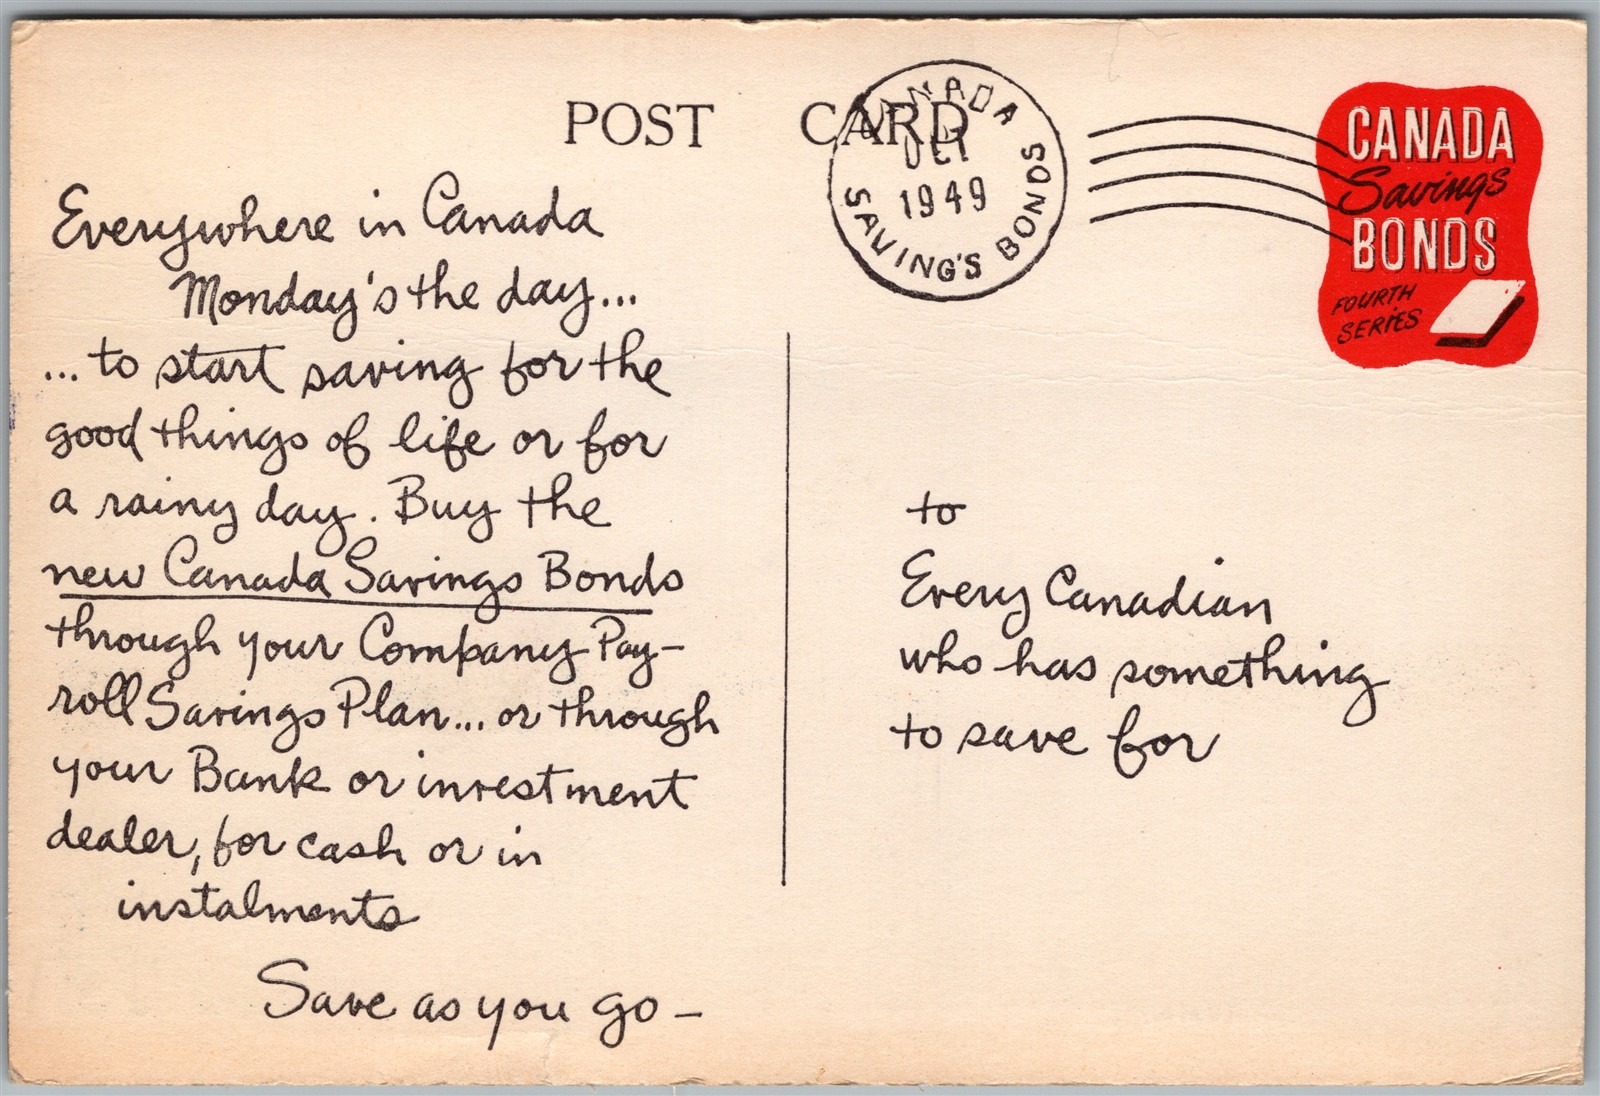 POST CARD
CANADA
OCT
1949
SAVING'S BONDS
CANADA
Savings
BONDS
FOURTH
SERIES
Everywhere in Canada
Monday's the day...
...to start saving for the
good things of life or for
a rainy day. Buy the
new Canada Savings Bonds
through your Company Pay-
roll Savings Plan... or through
your Bank or investment
dealer, for cash or in
instalments
Save as you go –
to
Every Canadian
who has something
to save for